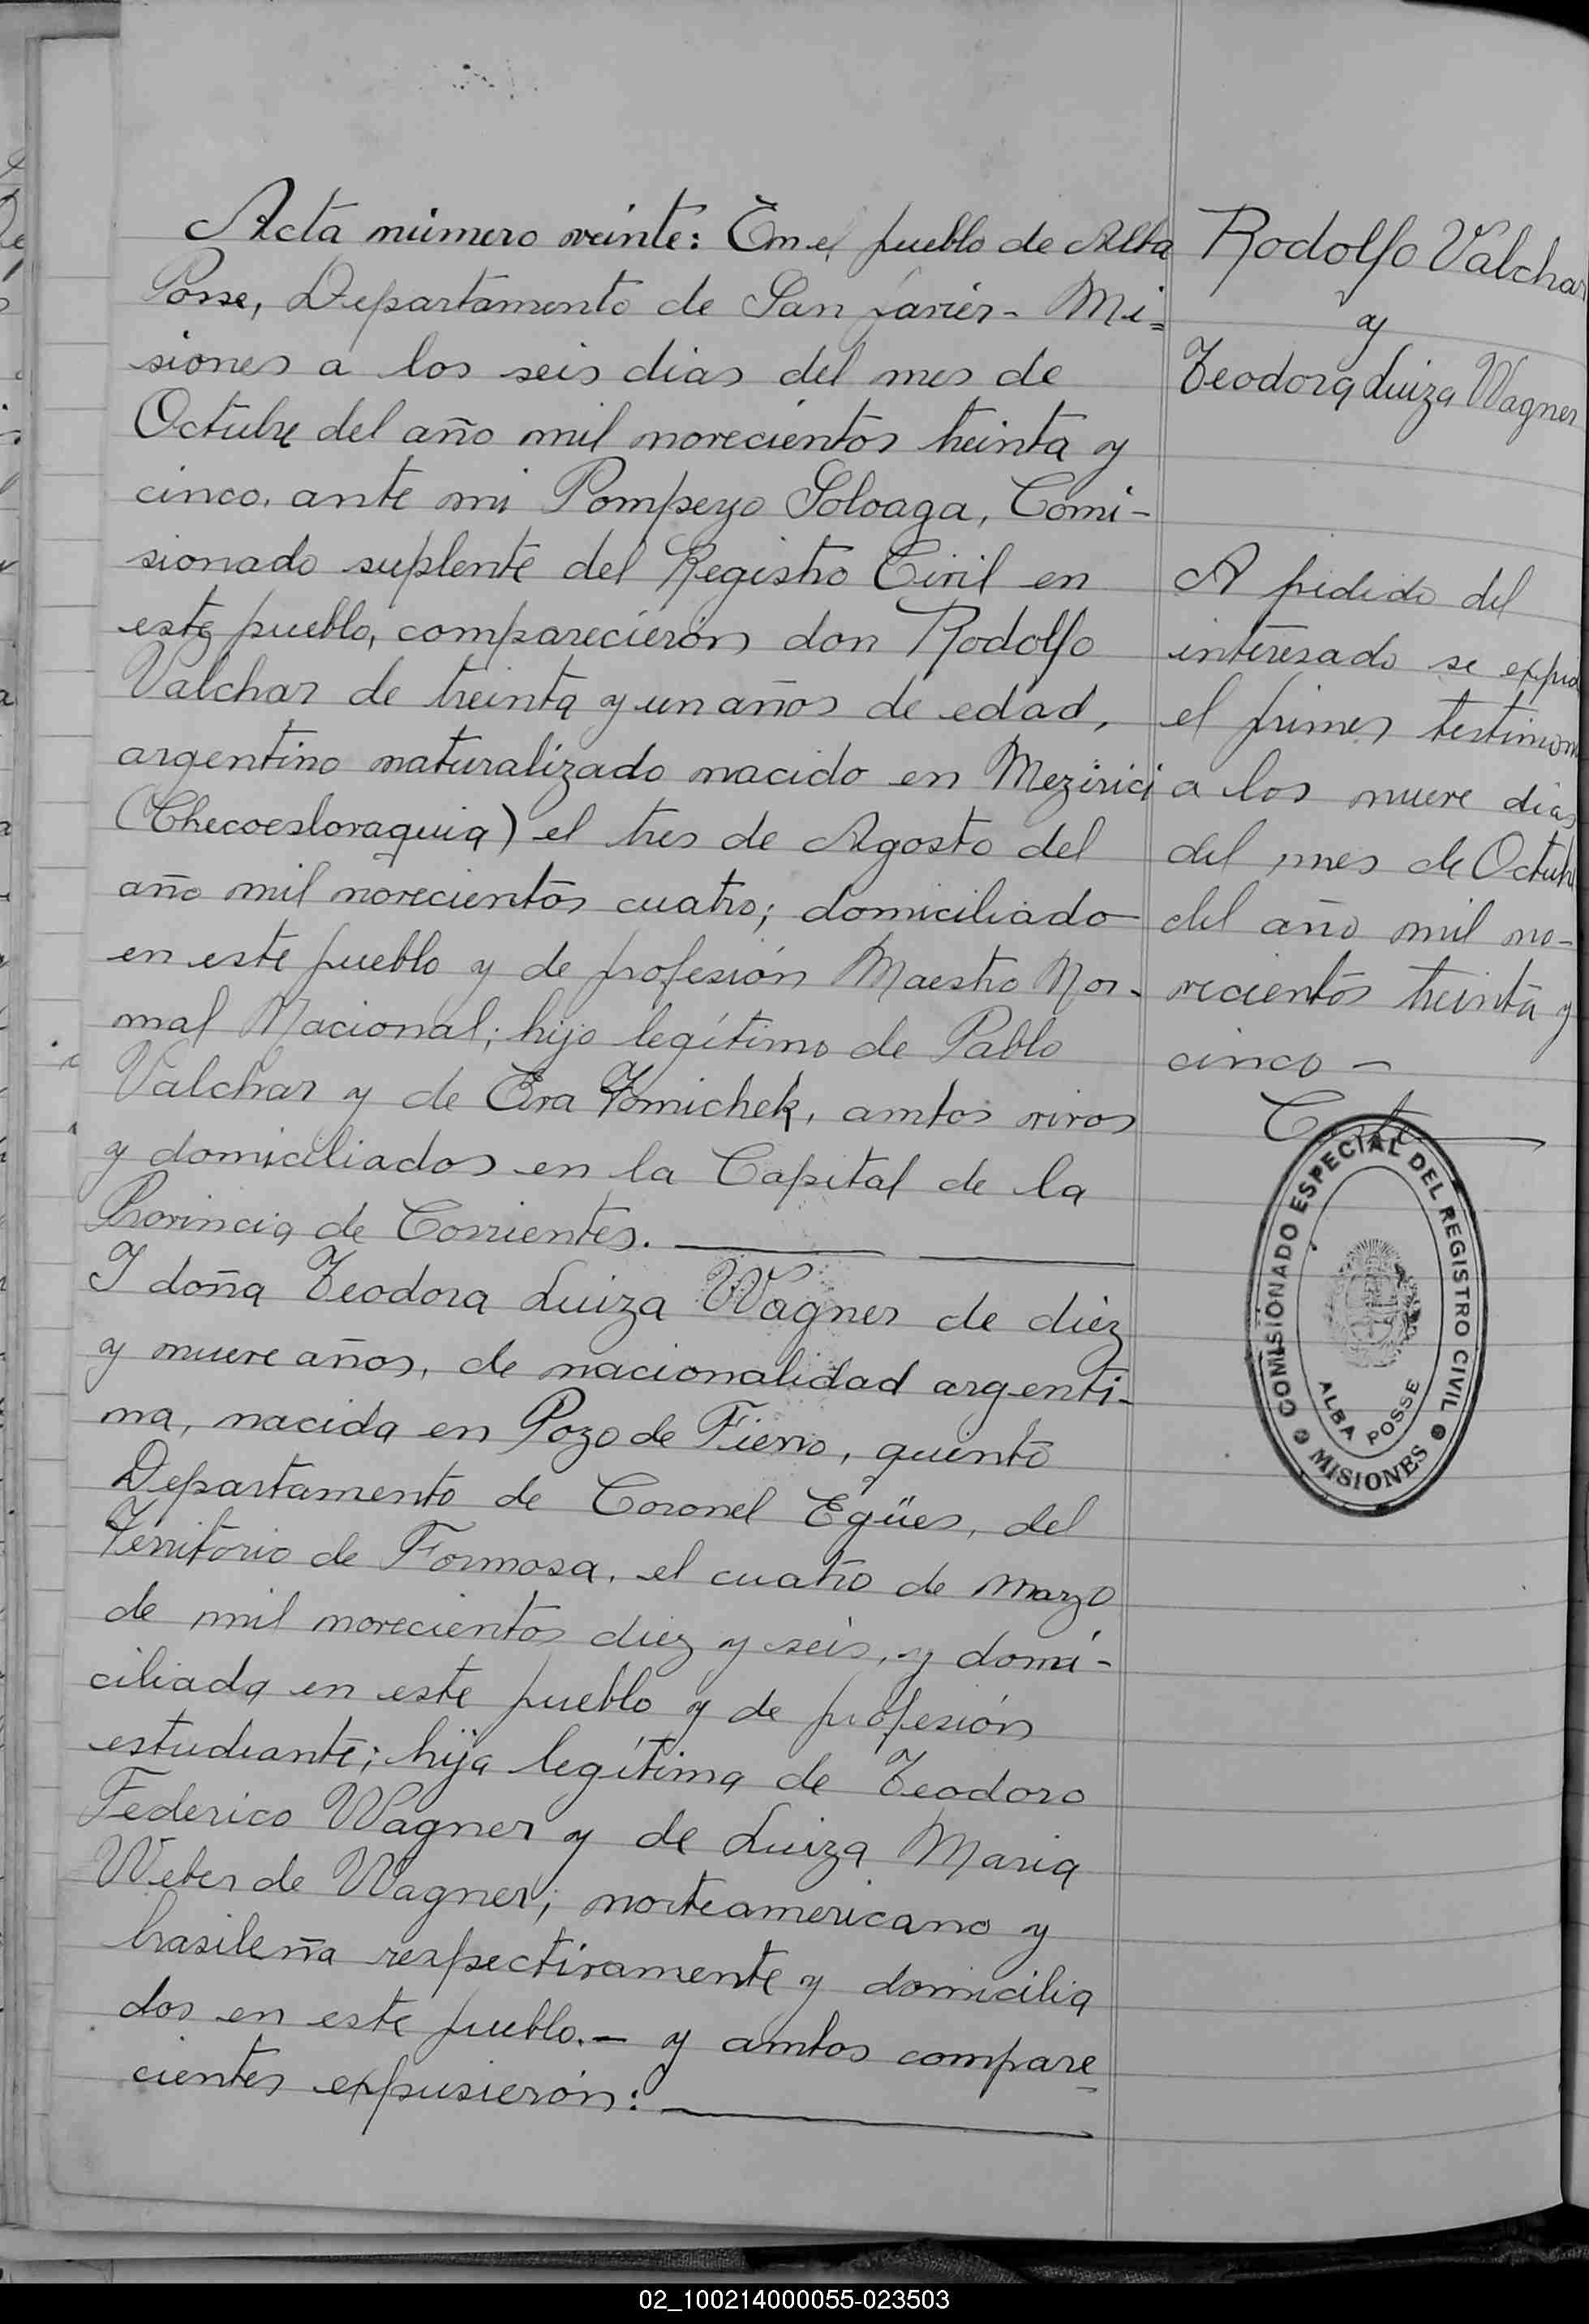 Acta número veinte: En el pueblo de Alba
Posse, Departamento de San Javier - Mi=
siones a los seis dias del mes de
Octubre del año mil novecientos treinta y
cinco, ante mi Pompeyo Soloaga, Comi-
sionado suplente del Registro Civil en
este pueblo, comparecierón don Rodolfo
Valchar de treinta y un años de edad,
argentino naturalizado nacido en Mezirici
(Checoeslovaquia) el tres de Agosto del
año mil novecientos cuatro; domiciliado
en este pueblo y de profesión Maestro Nor-
mal Nacional; hijo legítimo de Pablo
Valchar y de Eva Tomichek, ambos vivos
y domiciliados en la Capital de la
Provincia de Corrientes.
I doña Teodora Luiza Wagner de diéz
y nueve años, de nacionalidad argenti-
na, nacida en Pozo de Fierro, quinto
Departamento de Coronel Egües, del
Territorio de Formosa, el cuatro de marzo
de mil novecientos diez y seis, y domi-
ciliada en este pueblo y de profesión
estudiante; hija legítima de Teodoro
Federico Wagner y de Luiza Maria
Weber de Wagner; norteamericano y
brasileña respectivamente y domicilia
dos en este pueblo.- y ambos compare
cientes expusierón:
Rodolfo Valchar
y
Teodora Luiza Wagner
A pedido del
interesado se expid
el primer testimon
a los nueve dias
del mes de Octub
del año mil no-
vecientos treinta y
cinco -
COMISIONADO ESPECIAL DEL REGISTRO CIVIL
ALBA POSSE
MISIONES
02_100214000055-023503